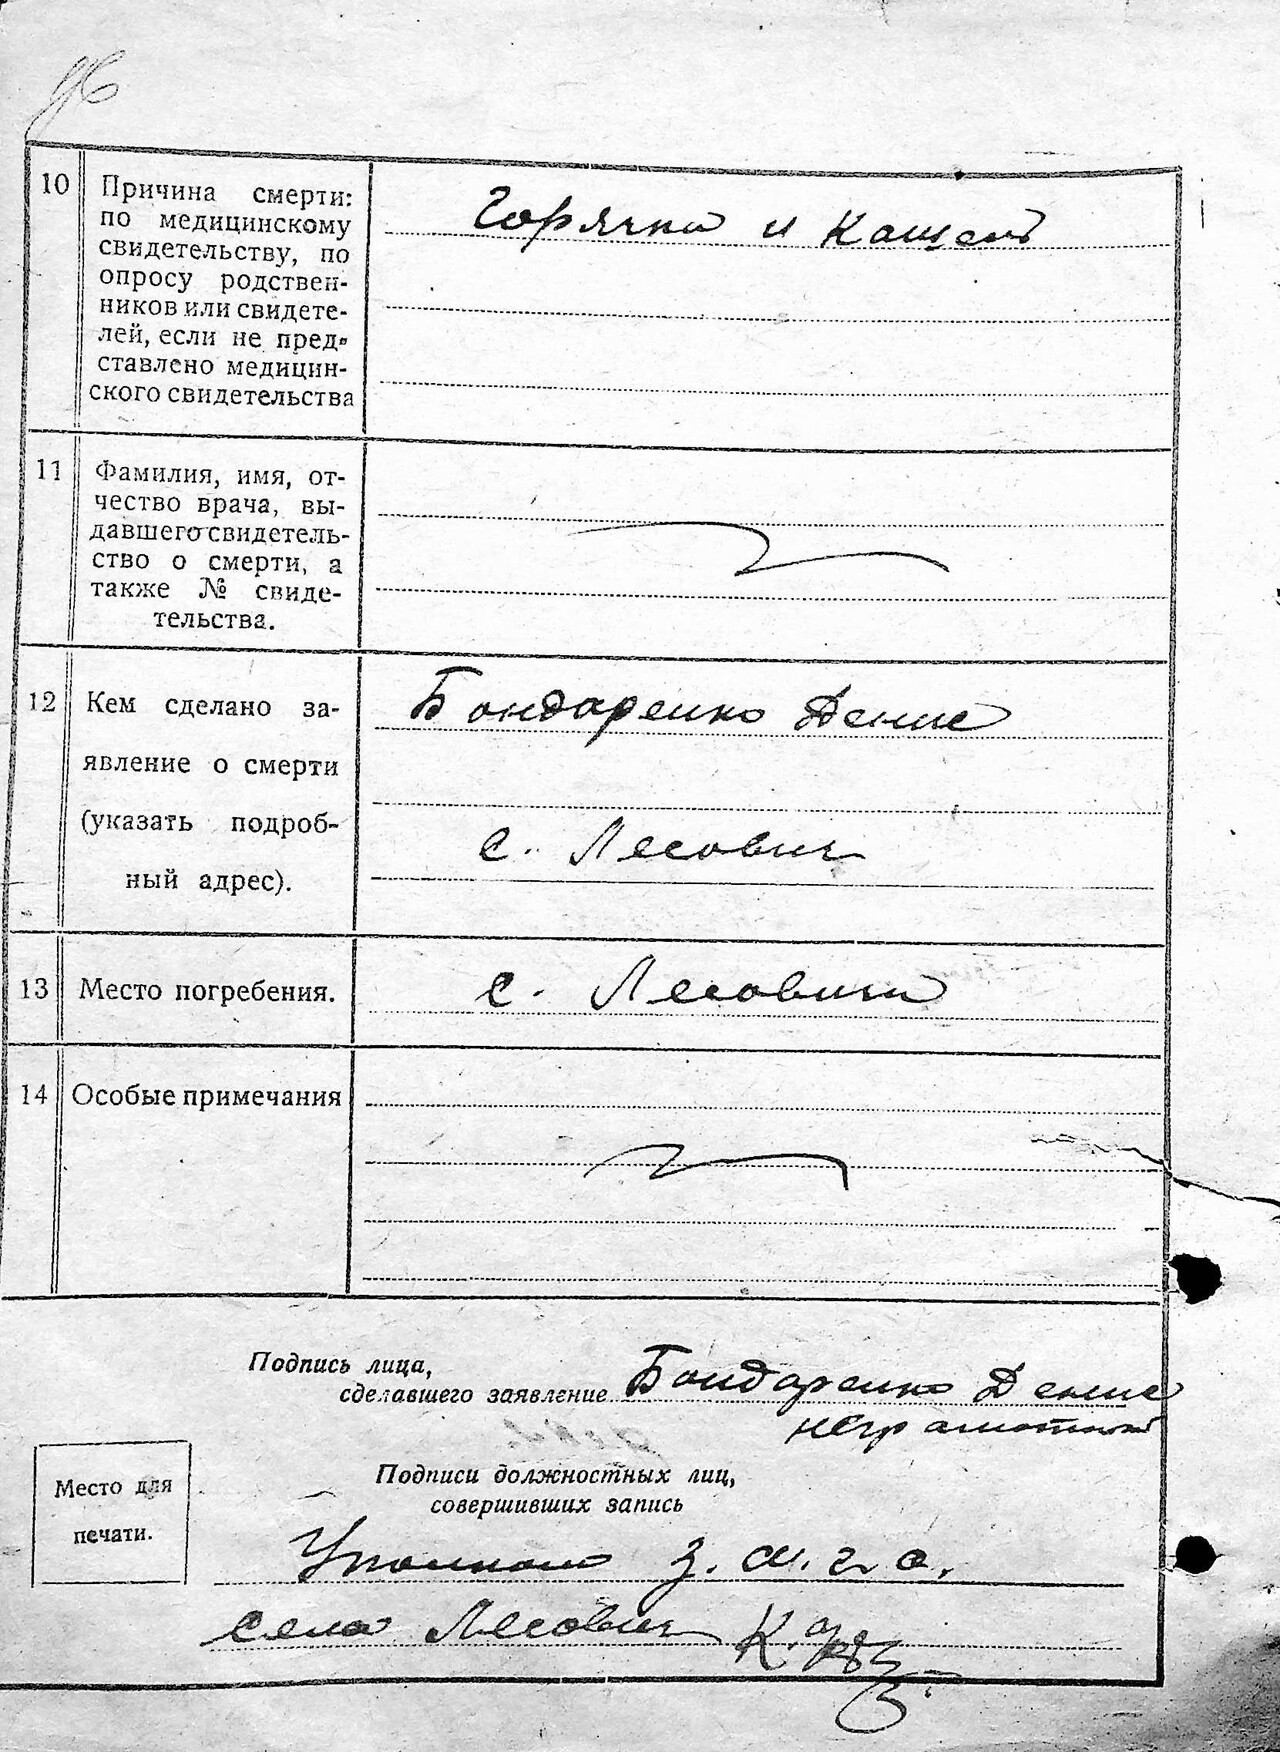 10 Причина смерти:
по медицинскому
свидетельству, по
опросу родствен-
ников или свидете-
лей, если не пред-
ставлено медицин-
ского свидетельства
Горячка и Кашель
11 Фамилия, имя, от-
чество врача, вы-
давшего свидетель-
ство о смерти, а
также № свиде-
тельства.
12 Кем сделано за-
явление о смерти
(указать подроб-
ный адрес).
Бондаренко Денис
с. Лесовичи
13 Место погребения.
с. Лесовичи
14 Особые примечания
Подпись лица,
сделавшего заявление Бондаренко Денис
неграмотный
Подписи должностных лиц,
совершивших запись
Место для
печати.
села Лесович